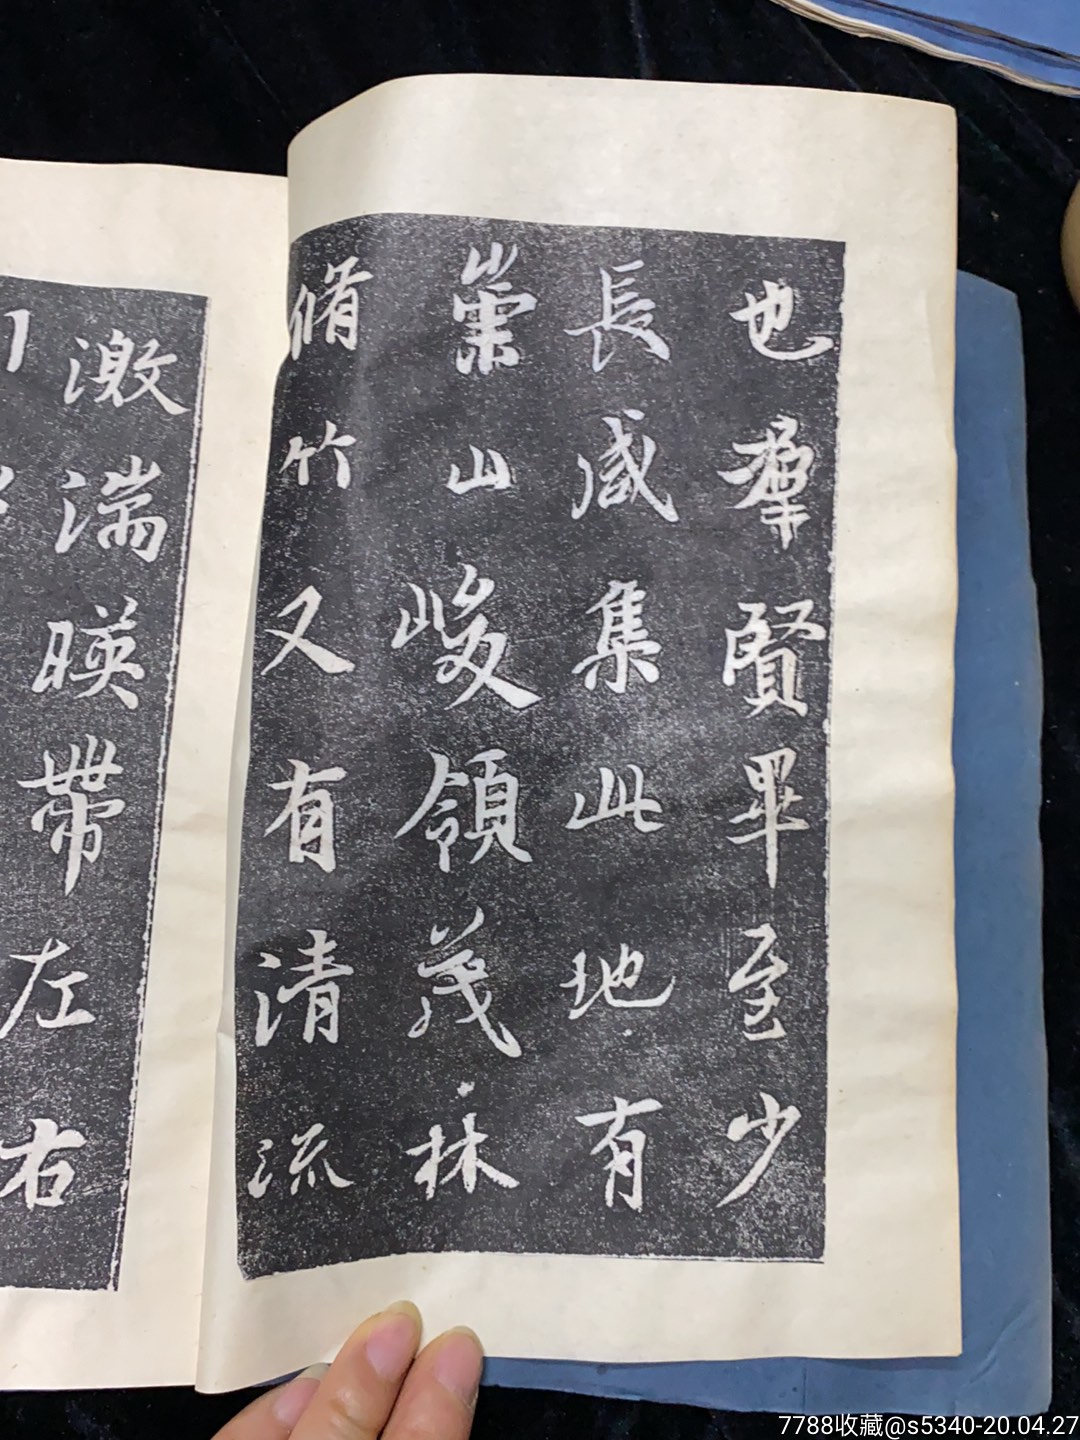 也羣賢畢至少
長咸集此地有
崇山峻領茂林
脩竹又有清流
激湍暎帶左右
7788收藏@s5340-20.04.27